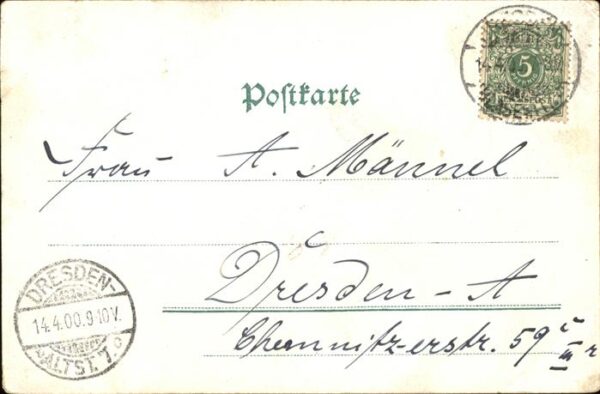 Postkarte
5
14.4.
Frau A. Männel
Dresden-A
Chemnitzerstr. 59 c
III r
DRESDEN-
14.4.00.9-10V.
ALTST. 7.